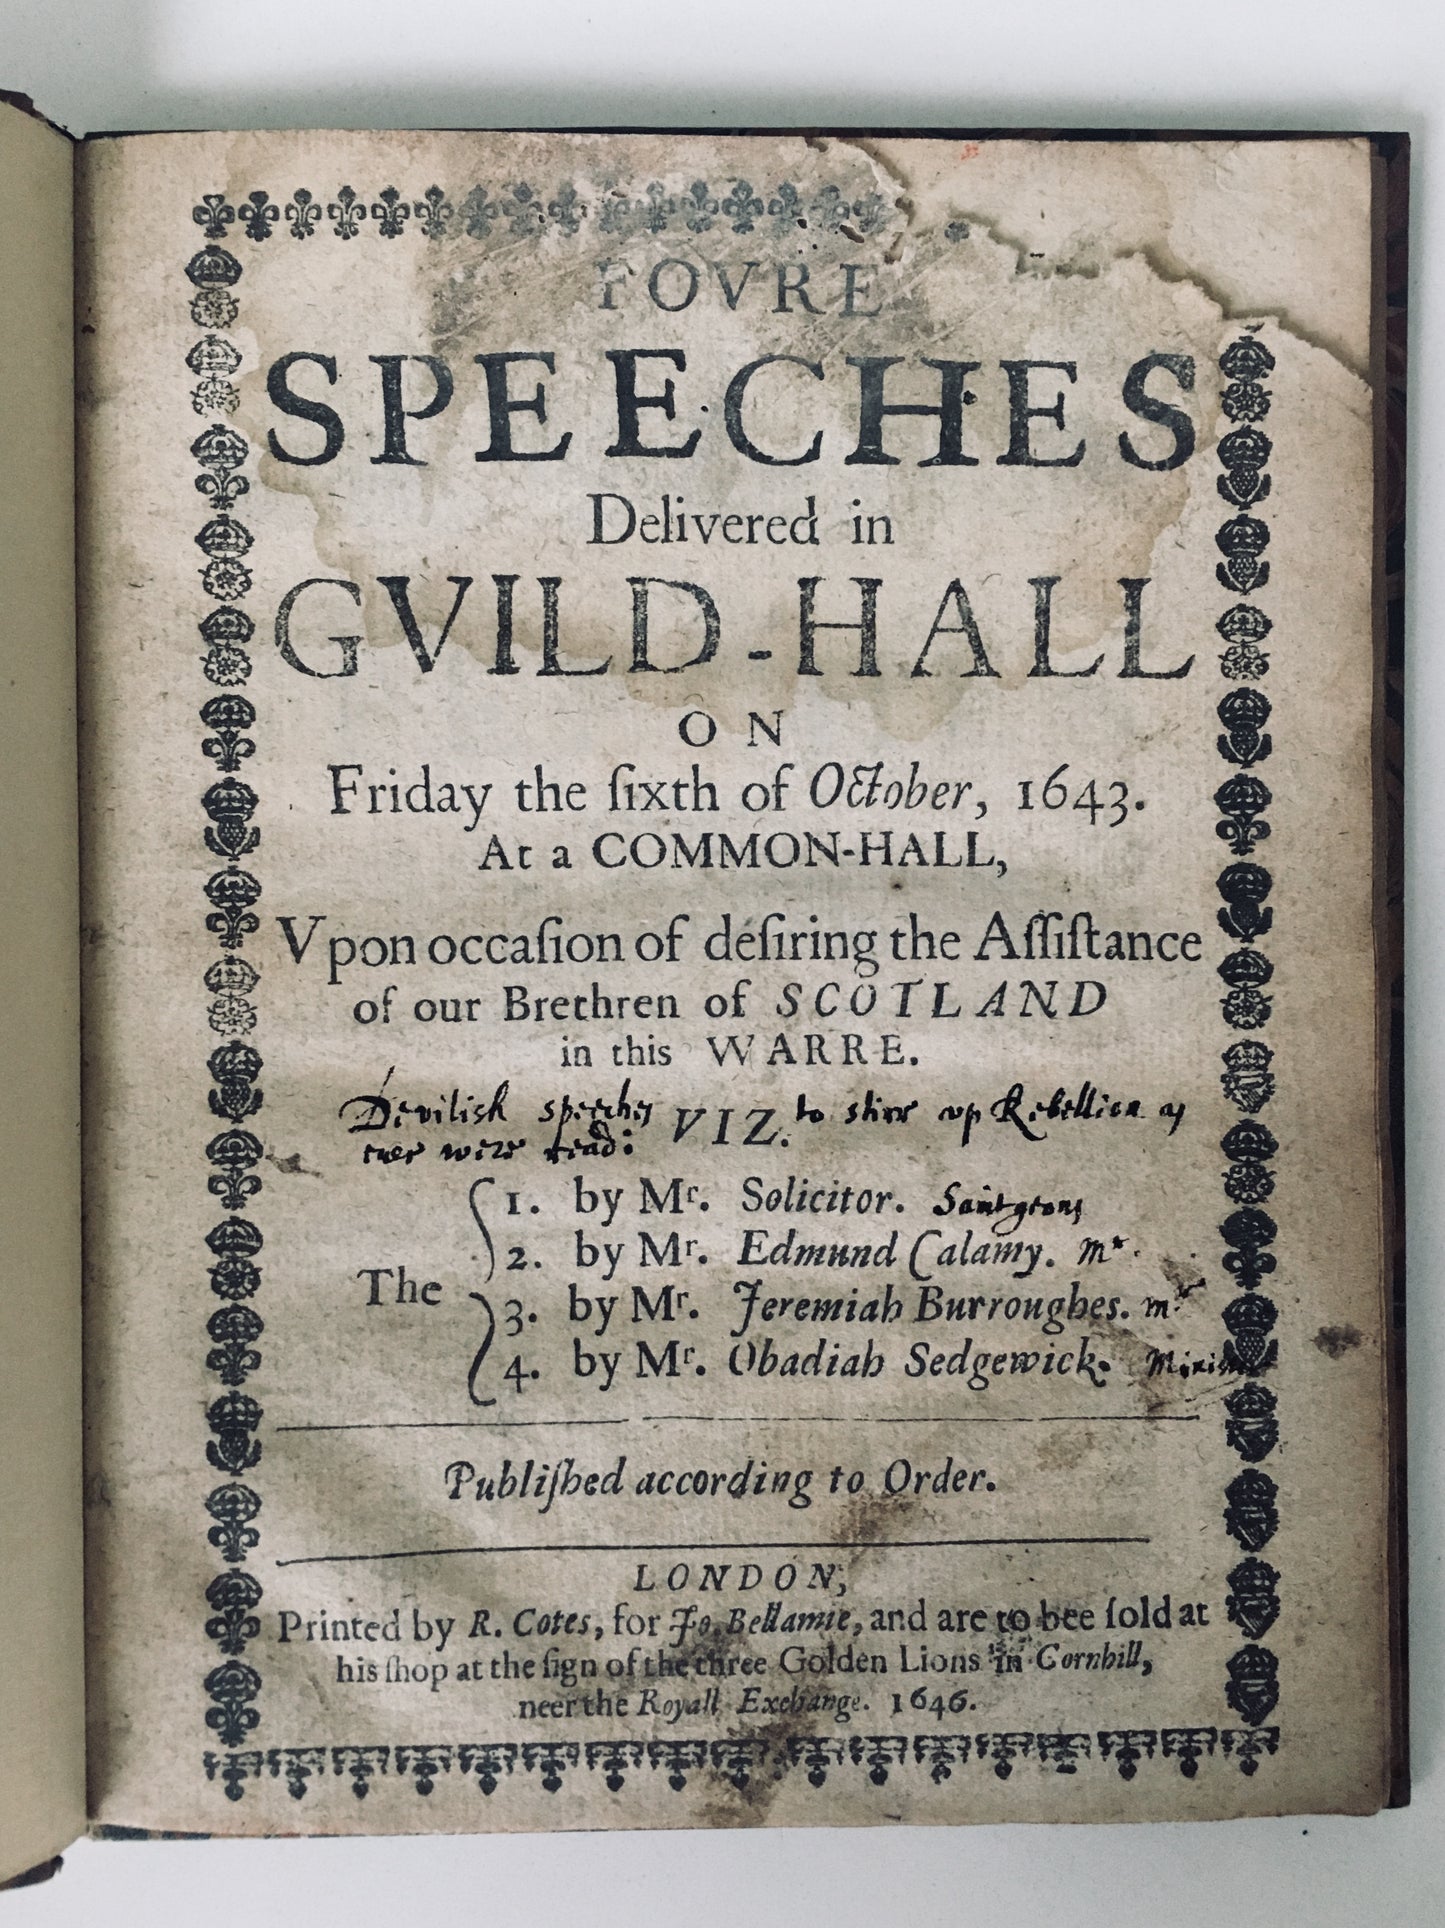 FOVRE
SPEECHES
Delivered in
GVILD-HALL
ON
Friday the ſixth of October, 1643.
At a COMMON-HALL,
Vpon occaſion of deſiring the Aſſiſtance
of our Brethren of SCOTLAND
in this WARRE.
Devilish speeches VIZ. to stirr up Rebellion as
ever were read:
1. by Mr. Solicitor.
2. by Mr. Edmund Calamy. Mr.
The
3. by Mr. Jeremiah Burroughes. mr
4. by Mr. Obadiah Sedgewick.
Publiſhed according to Order.
LONDON,
Printed by R. Cotes, for Jo. Bellamie, and are to bee ſold at
his ſhop at the ſign of the three Golden Lions in Cornhill,
neer the Royall Exchange. 1646.